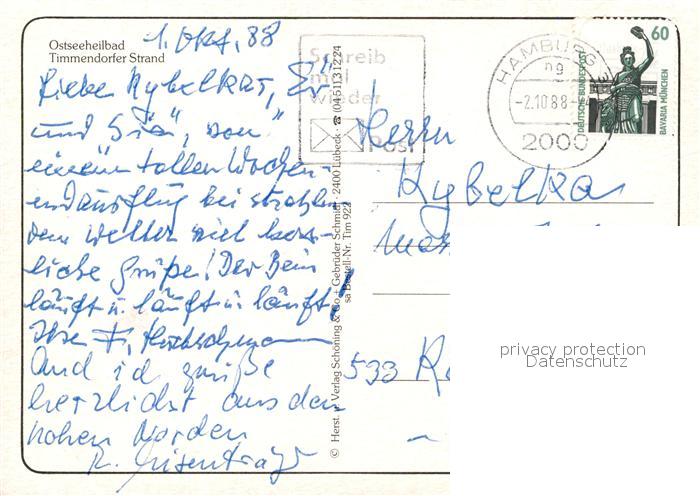 Ostseeheilbad
Timmendorfer Strand
1. Okt. 88
Liebe Kybelkas, "Er"
und "Sie", von
einem tollen Wochen-
endausflug bei strahlen-
dem Wetter viel herz-
liche Grüße! Der Bein
läuft u. läuft u. läuft.
Ihre
Und ich grüße
herzlichst aus dem
hohen Norden
K.
© Herst. u. Verlag Schöning & Co + Gebrüder Schmidt, 2400 Lübeck · ☎ (0451) 31224
sa Bestell-Nr. Tim 922
Schreib
mal
wieder
Post
HAMBURG
ng
-2.10.88-
2000
60
DEUTSCHE BUNDESPOST
BAVARIA MÜNCHEN
Herrn
Kybelka
533
privacy protection
Datenschutz